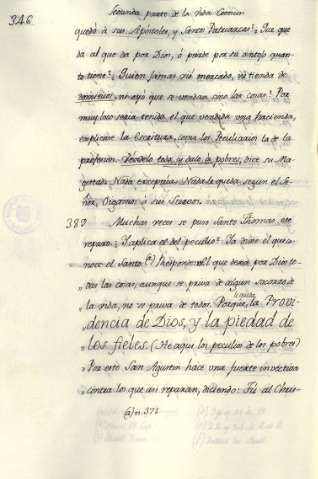 346
Segunda parte de la Vida Comun
quedó à sus Apóstoles, y Santos Patriarcas? ¿Que que
da al que da por Dios, ò pierde por su quanto
tiene? ¿Quien jamas viò mercado, ni tienda de
ni oyó que se vendan sino las cosas? Por
muy loco seria tenido el que vendida una hacienda,
explicase la Escritura, como los Peculiarios la de la
profesion. Vendelo todo, y dalo à pobres, dice su Ma-
gestad. Nada exceptúa. Nada le queda segun el Se-
ñor. Oigamos à sus Siervos.
383 Muchas veces se puso Santo Thomas este
reparo: ¿Y aplica el del peculio? Ya dixe el que co-
noce el Santo. (a) Responde: el que dexa por Dios to-
das las cosas, aunque se priva de algun socorro de
la vida, no se priva de todos. Porque le queda la Provi
dencia de Dios, y la piedad de
los fieles. (He aqui los peculios de los pobres)
Por esto San Agustin hace una fuerte invectiva
contra los que asi reparan, diciendo: Tú al Chris-
(a) n. 372